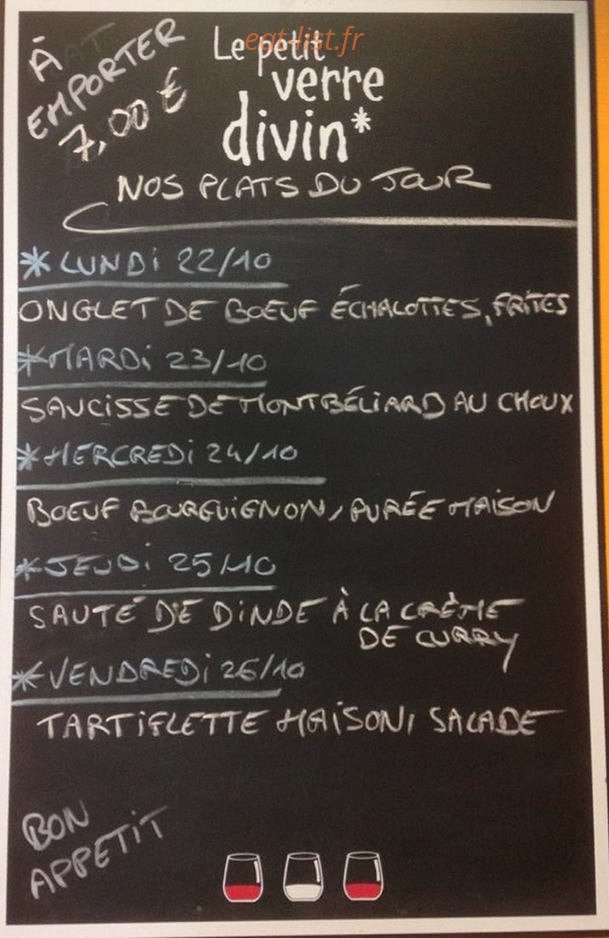 À
EMPORTER
7,00 €
eat-list.fr
Le petit
verre
divin*
NOS PLATS DU JOUR
* LUNDI 22/10
ONGLET DE BOEUF ÉCHALOTTES, FRITES
* MARDI 23/10
SAUCISSE DE MONTBÉLIARD AU CHOUX
* MERCREDI 24/10
BOEUF BOURGUIGNON, PURÉE MAISON
* JEUDI 25/10
SAUTÉ DE DINDE À LA CRÈME
DE CURRY
* VENDREDI 26/10
TARTIFLETTE MAISON, SALADE
BON
APPETIT